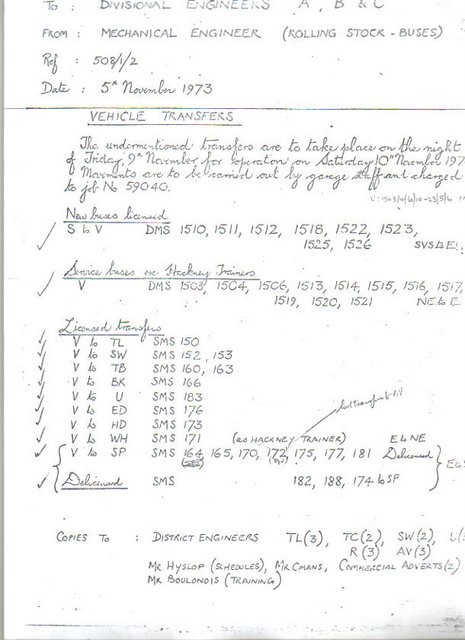 TO : DIVISIONAL ENGINEERS A, B & C
FROM : MECHANICAL ENGINEER (ROLLING STOCK - BUSES)
Ref : 508/1/2
Date : 5th November 1973
VEHICLE TRANSFERS
The undermentioned transfers are to take place on the night
of Friday, 9th November for operation on Saturday 10th November 197
Movements are to be carried out by garage staff and charged
to job No 59040.
New buses licensed
S to V DMS 1510, 1511, 1512, 1518, 1522, 1523,
1525, 1526 SVS to E
Service buses ex. Hackney Trainers
V DMS 1503, 1504, 1506, 1513, 1514, 1515, 1516, 1517,
1519, 1520, 1521 NE to E
Licensed transfers
V to TL SMS 150
V to SW SMS 152, 153
V to TB SMS 160, 163
V to BK SMS 166
V to U SMS 183
V to ED SMS 176
V to HD SMS 173
V to WH SMS 171 (as HACKNEY TRAINER) E to NE
V to SP SMS 164, 165, 170, 172, 175, 177, 181 Delicensed
Delicensed SMS 182, 188, 174 to SP
COPIES TO : DISTRICT ENGINEERS TL(3), TC(2), SW(2),
R(3) AV(3)
MR HYSLOP (SCHEDULES), MR CMANS, COMMERCIAL ADVERTS(2)
MR BOULONOIS (TRAINING)